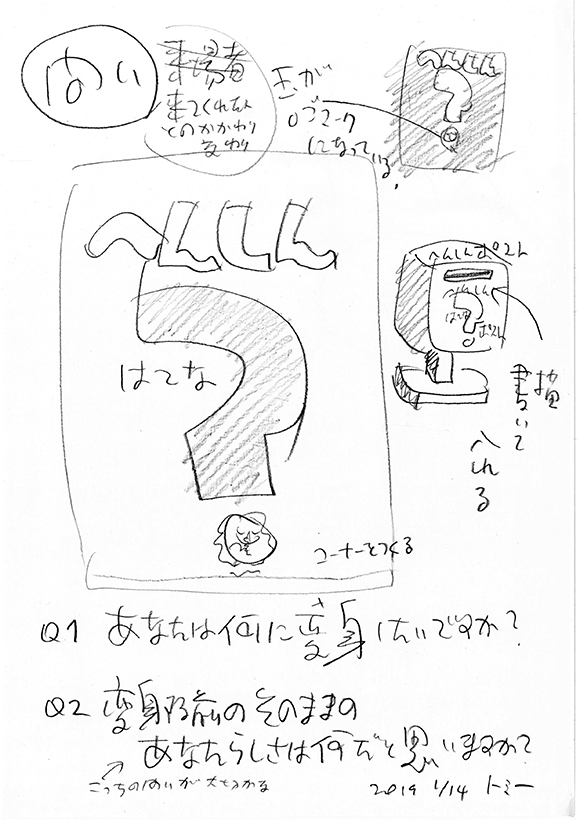 問い
来場者
来てくれた人
とのかかわり
玉が
？マーク
になっている。
へんしん
？
へんしんポスト
へんしん
はてな
ポスト
描
書いて
入れる
へんしん
はてな
コーナーをつくる
Q1 あなたは何に変身したいですか？
Q2 変身する前のそのままの
あなたらしさは何だと思いますか？
こっちの問いが
2019 1/14 トミー